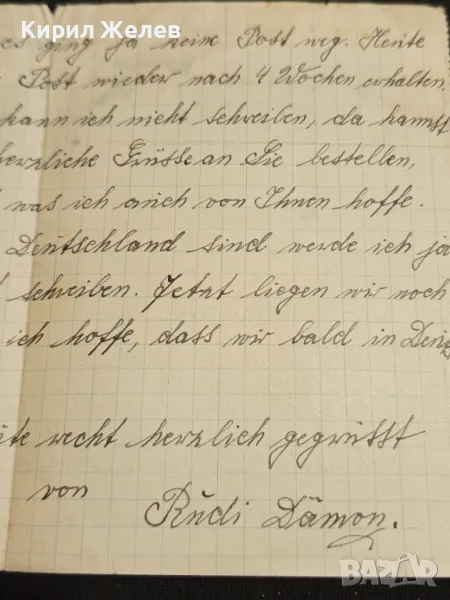 Кирил Желев
es ging ja keine Post weg. Heute
Post wieder nach 4 Wochen erhalten.
kann ich nicht schreiben, da kannst
herzliche Grüsse an Sie bestellen,
was ich auch von Ihnen hoffe.
Deutschland sind werde ich ja
schreiben. Jetzt liegen wir noch
ich hoffe, dass wir bald in Deut
recht herzlich gegrüsst
von Rudi Dämon.
bazar